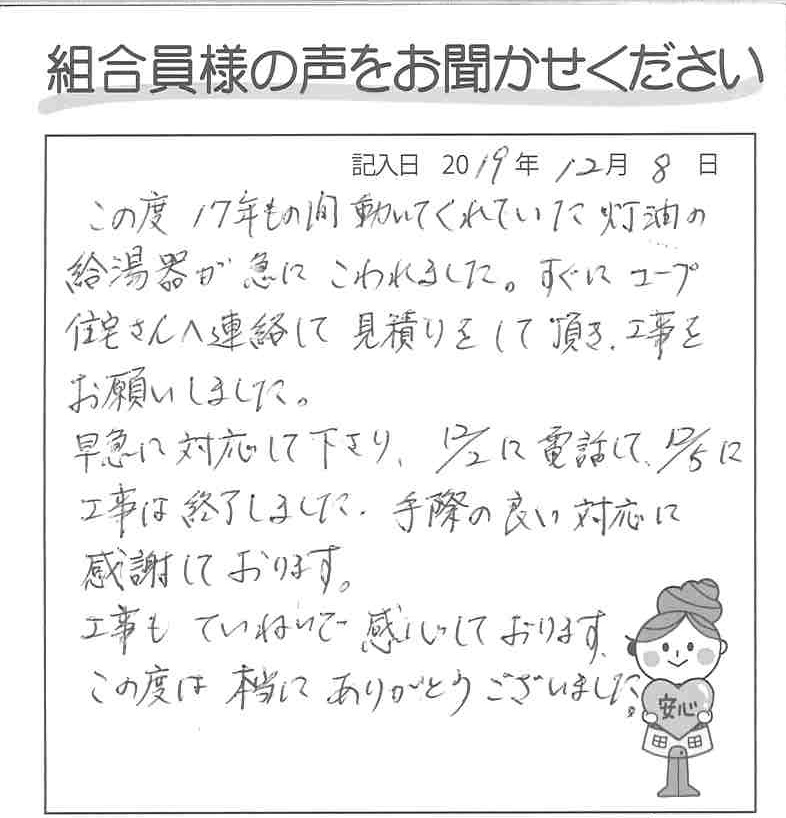 組合員様の声をお聞かせください
記入日 2019年 12月 8日
この度 17年もの間 動いてくれていた 灯油の
給湯器が 急に こわれました。すぐに コープ
住宅さんへ連絡して 見積りをして頂き、工事を
お願いしました。
早急に 対応して下さり、12/2に 電話して、12/5に
工事は 終了しました。手際の良い 対応に
感謝しております。
工事も ていねいで 感心しております。
この度は 本当に ありがとうございました。
安心